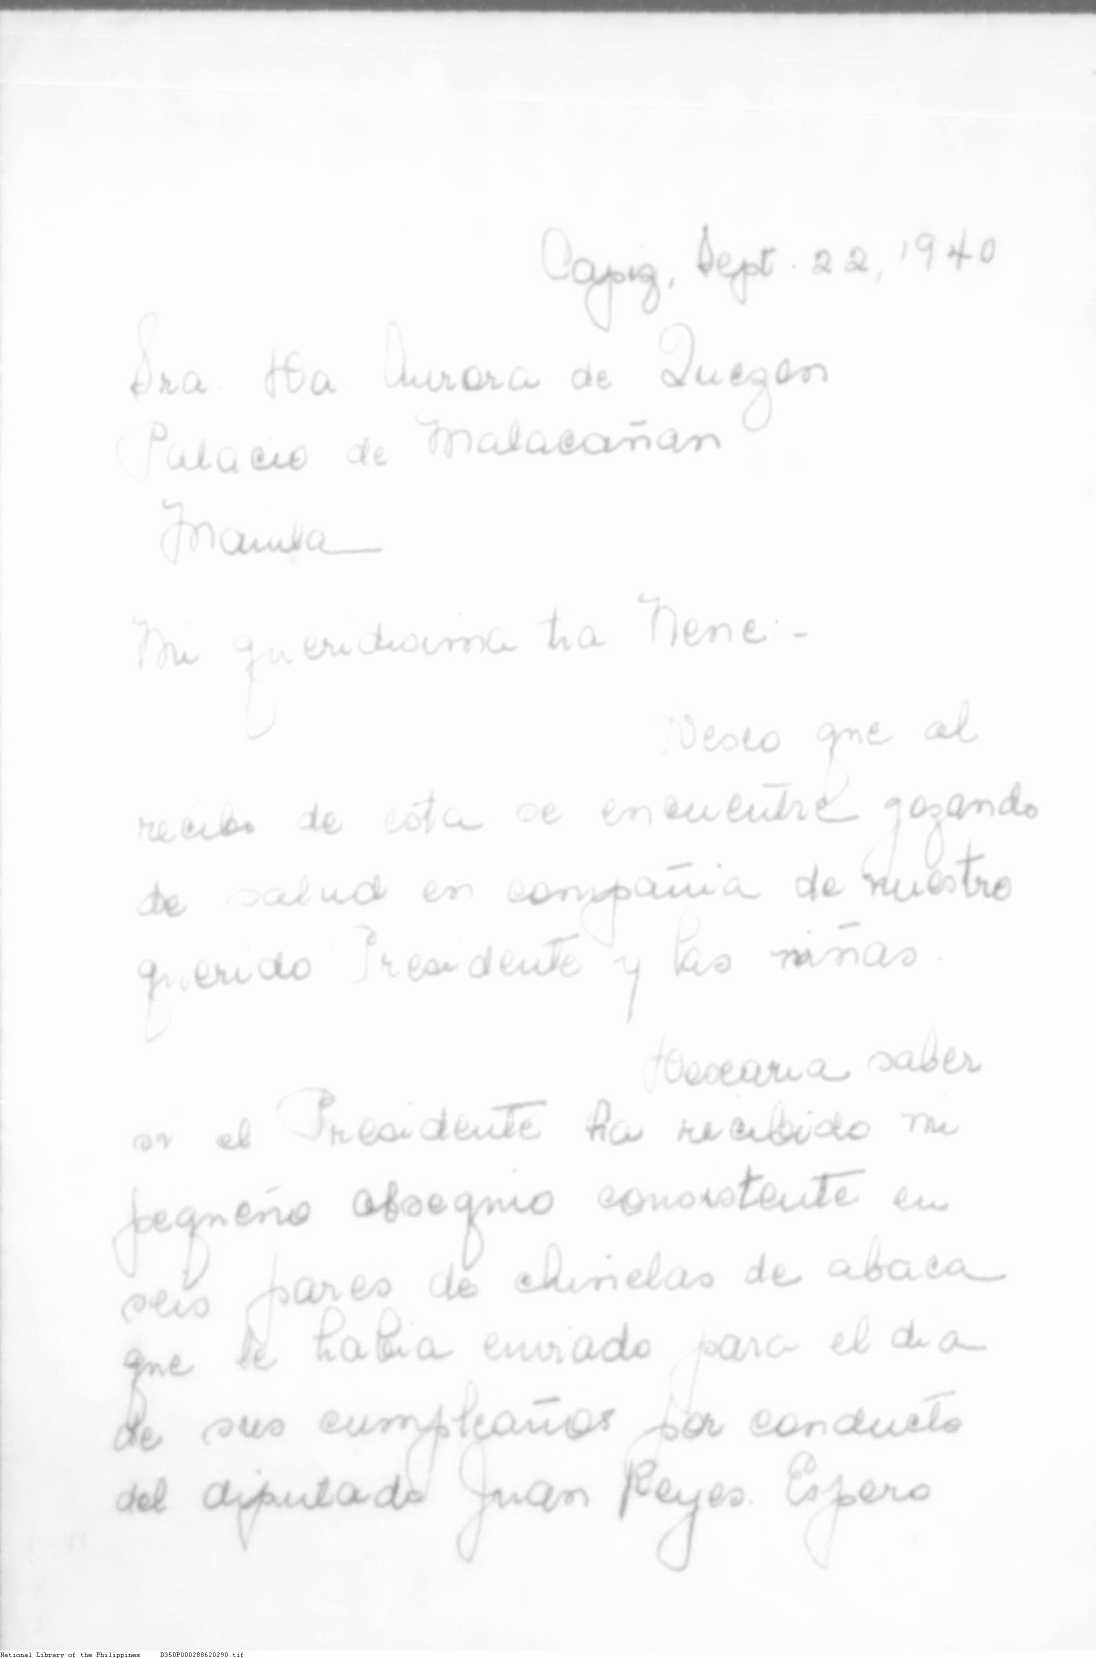 Capiz, Sept. 22, 1940
Sra. Da Aurora de Quezon
Palacio de Malacañan
Manila
Mi queridisima tia Nene:-
Deseo que al
recibo de esta se encuentre gozando
de salud en compañia de nuestro
querido Presidente y las niñas.
Desearia saber
si el Presidente ha recibido mi
pequeño obsequio consistente en
seis pares de chinelas de abaca
que le habia enviado para el dia
de sus cumpleaños por conducto
del diputado Juan Reyes. Espero
National Library of the Philippines D350P000288620290.tif